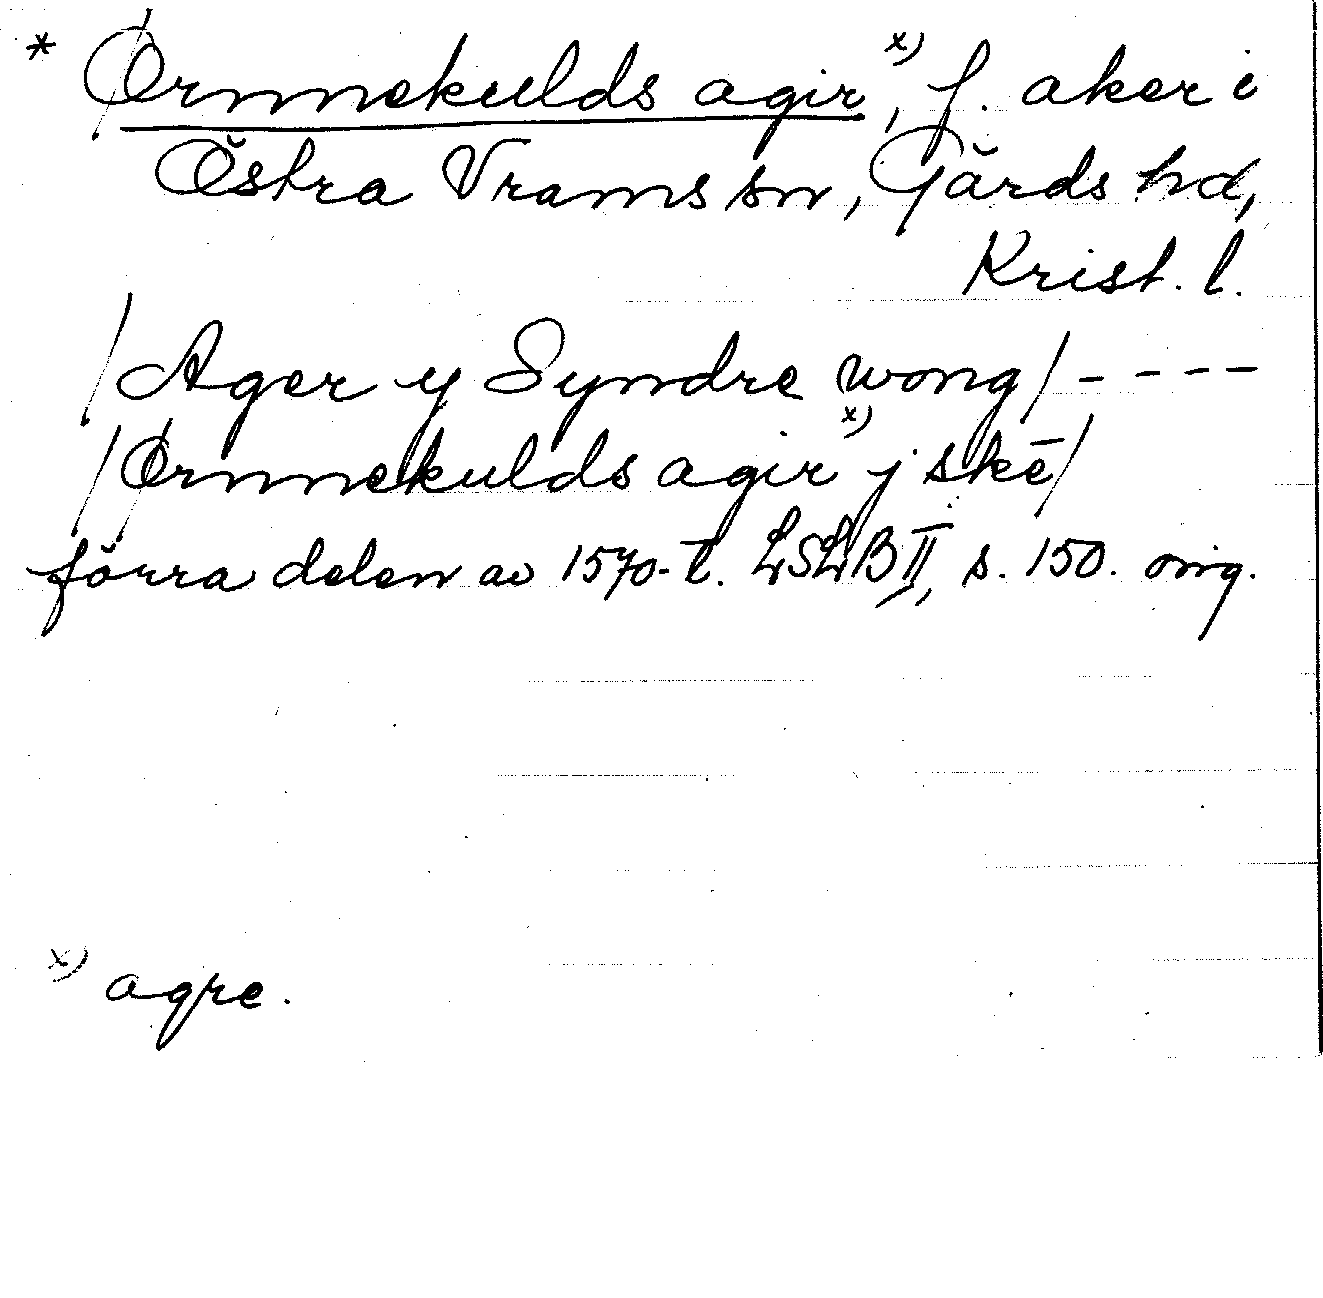 * Ørnnekulds agir x), f. åker i
Östra Vrams sn, Gärds hd,
Krist. l.
/Ager y Syndre wong/ - - - -
/Ørnnekulds agir x) j skē/
förra delen av 1570-t. LSLB II, s. 150. orig.
x) agre.